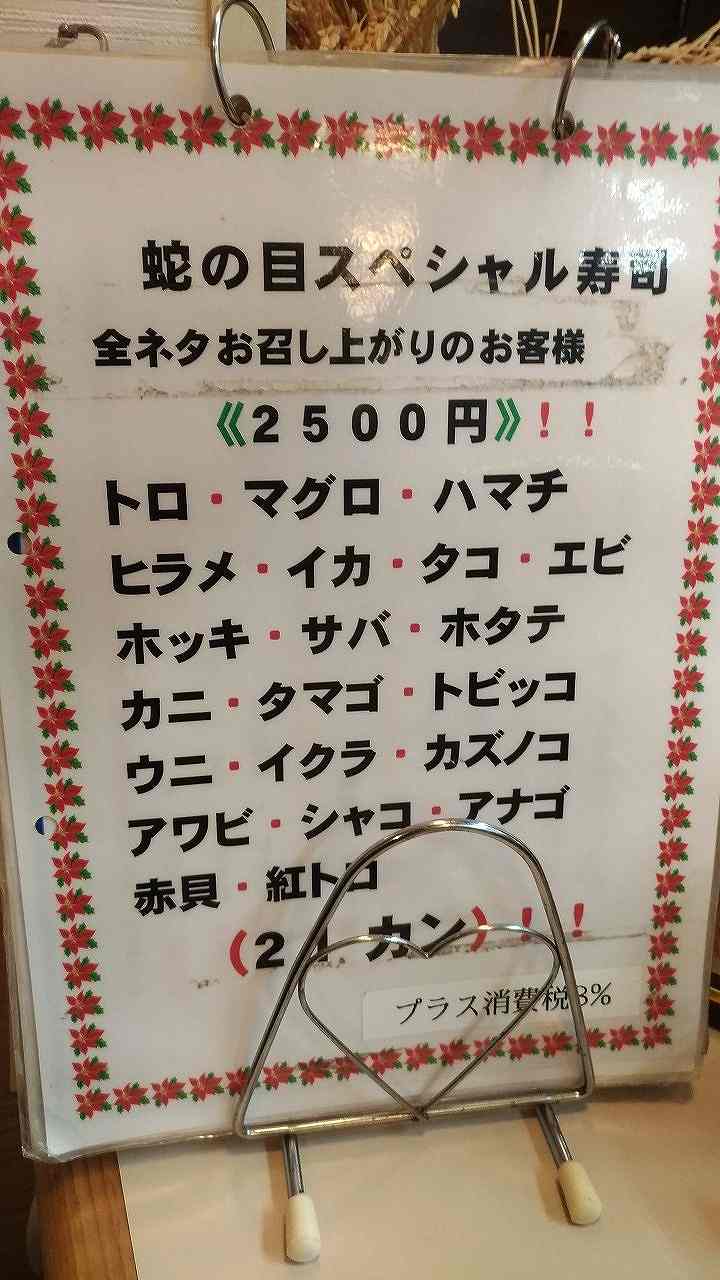 蛇の目スペシャル寿司
全ネタお召し上がりのお客様
《2500円》!!
トロ・マグロ・ハマチ
ヒラメ・イカ・タコ・エビ
ホッキ・サバ・ホタテ
カニ・タマゴ・トビッコ
ウニ・イクラ・カズノコ
アワビ・シャコ・アナゴ
赤貝・紅トロ
(21カン)!!
プラス消費税8%